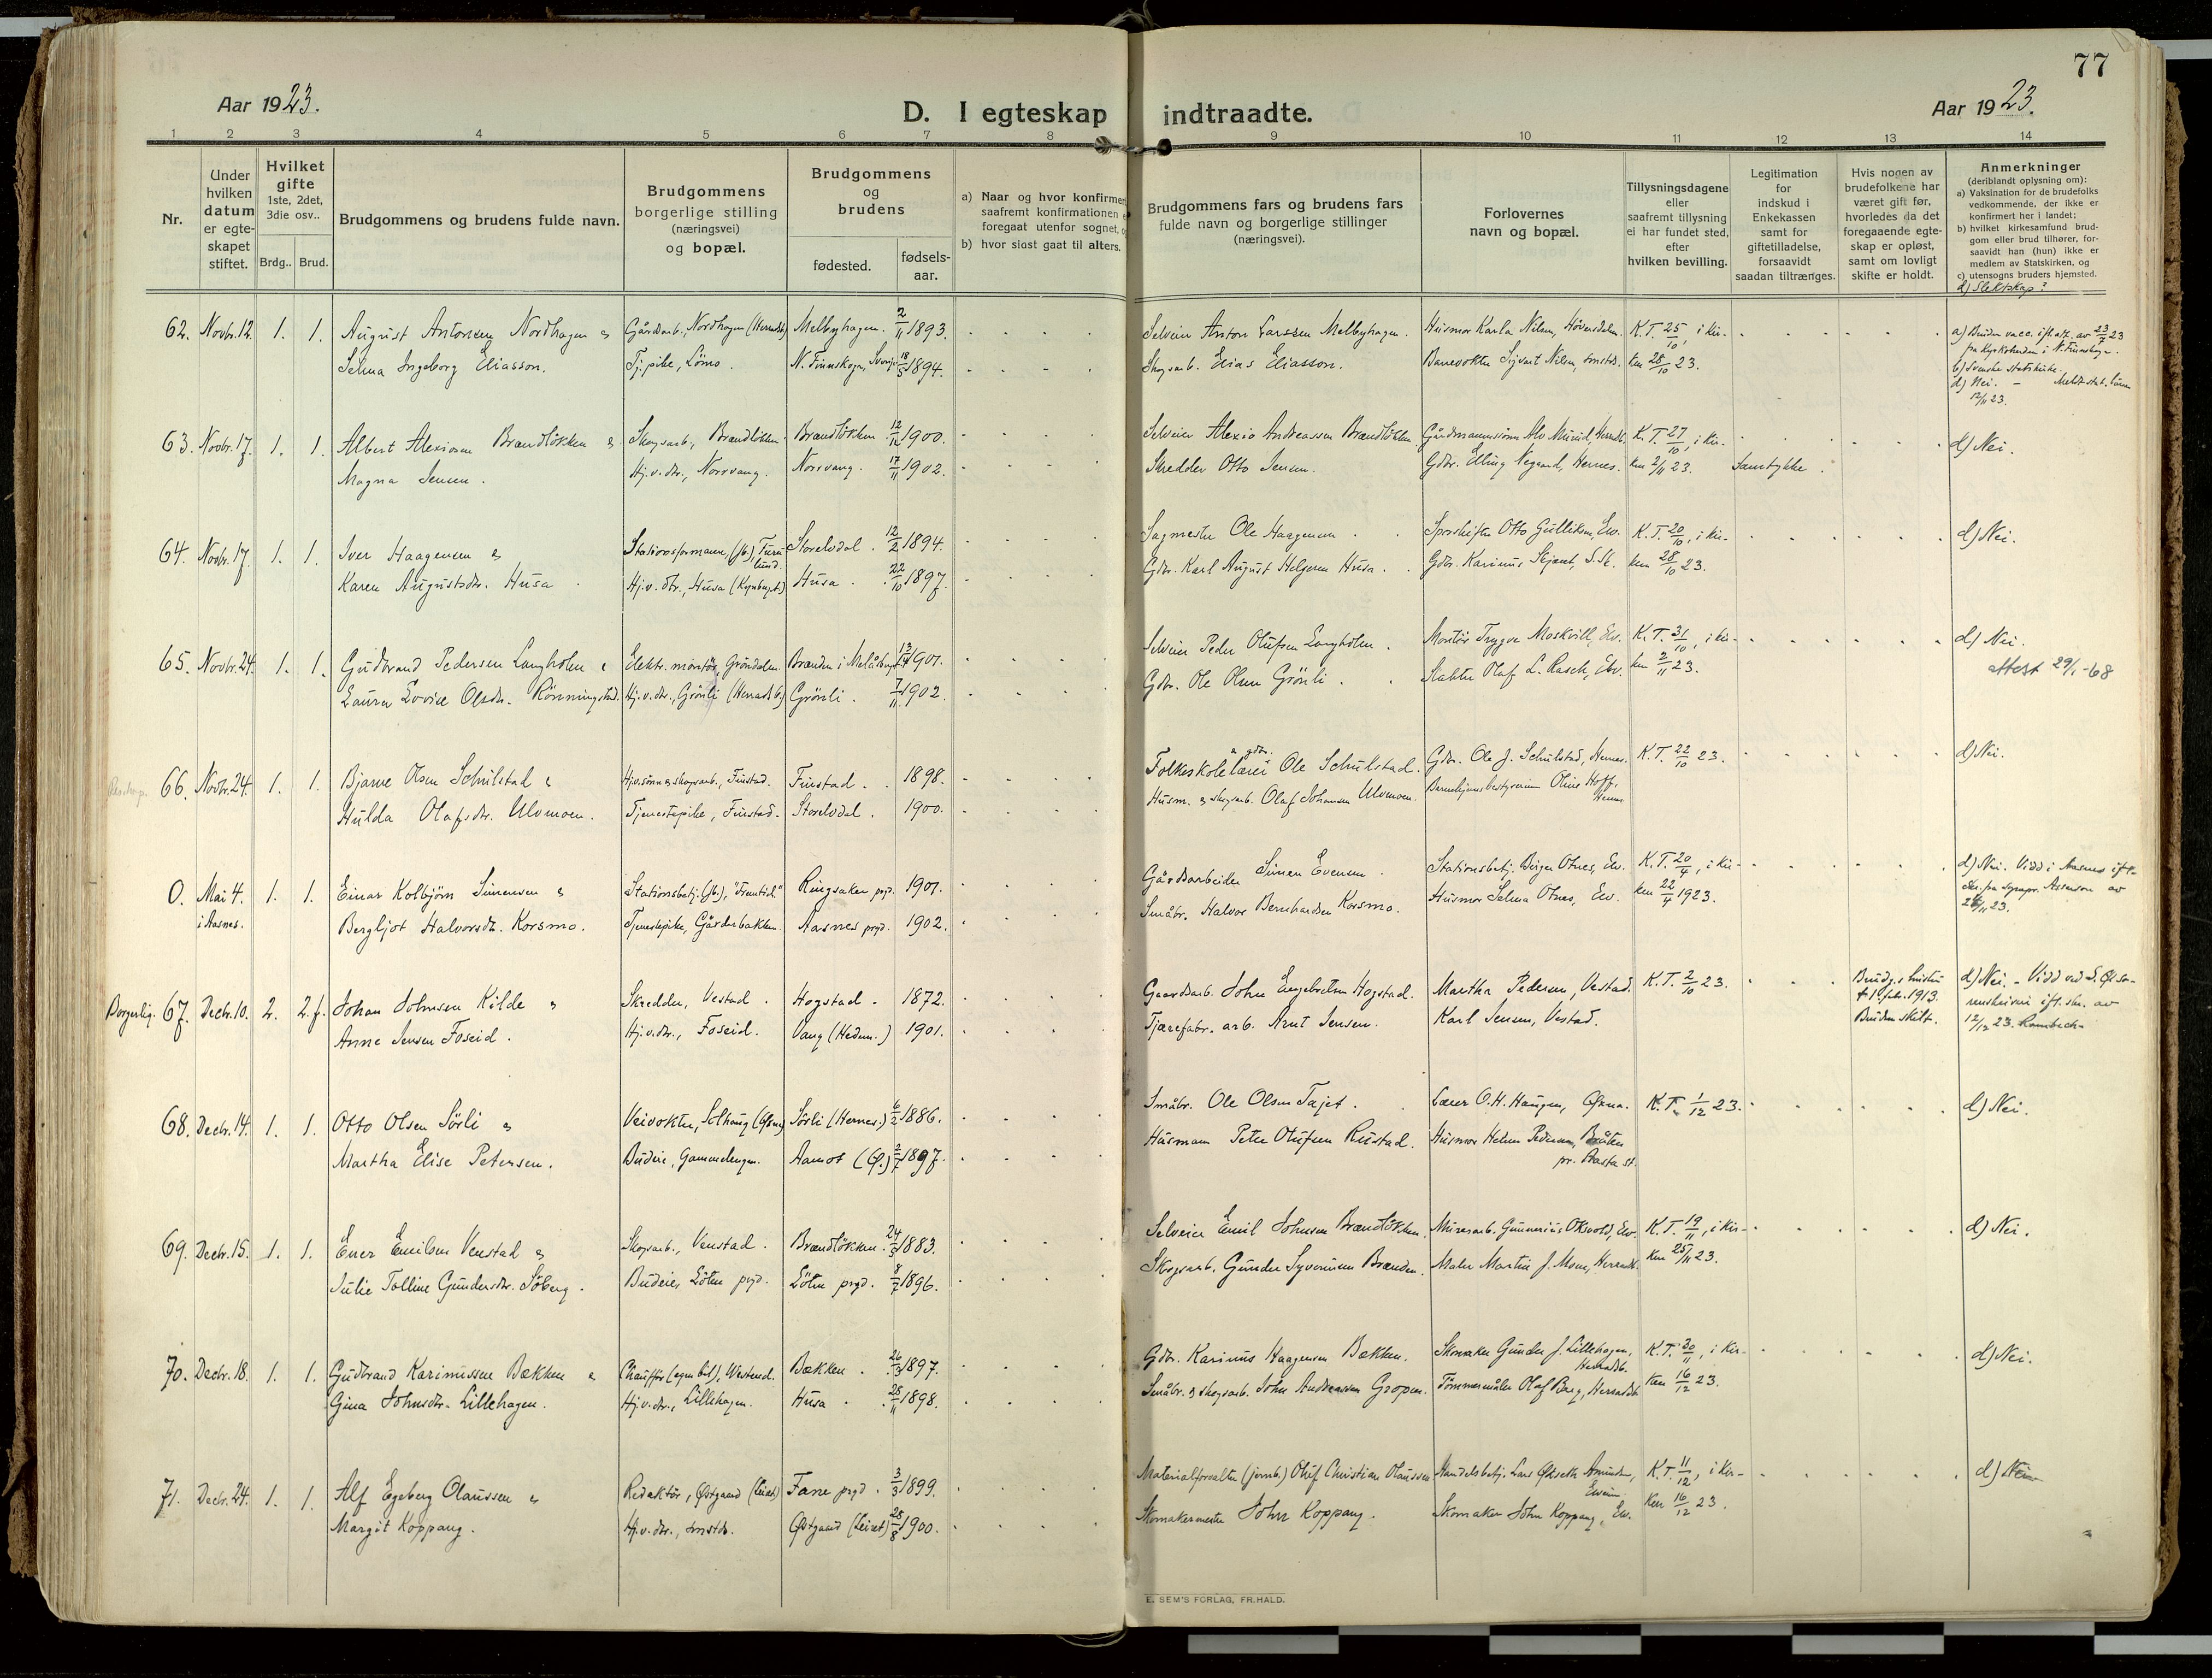 77
Aar 1923.
D. I egteskap indtraadte.
Aar 1923.
1 2 3 4 5 6 7 8 9 10 11 12 13 14
Nr.
Under hvilken datum er egte-skapet stiftet.
Hvilket gifte 1ste, 2det, 3die osv..
Brdg.. Brud.
Brudgommens og brudens fulde navn.
Brudgommens borgerlige stilling (næringsvei) og bopæl.
Brudgommens og brudens
fødested.
fødsels-aar.
a) Naar og hvor konfirmer
saafremt konfirmationen
foregaat utenfor sognet,
b) hvor sidst gaat til alters.
Brudgommens fars og brudens fars
fulde navn og borgerlige stillinger
(næringsvei).
Forlovernes
navn og bopæl.
Tillysningsdagene
eller
saafremt tillysning
ei har fundet sted,
efter
hvilken bevilling.
Legitimation
for
indskud i
Enkekassen
samt for
giftetilladelse,
forsaavidt
saadan tiltrænges.
Hvis nogen av
brudefolkene har
været gift før,
hvorledes da det
foregaaende egte-
skap er opløst,
samt om lovligt
skifte er holdt.
Anmerkninger
(deriblandt oplysning om):
a) Vaksination for de brudefolks
vedkommende, der ikke er
konfirmert her i landet;
b) hvilket kirkesamfund brud-
gom eller brud tilhører, for-
saavidt han (hun) ikke er
medlem av Statskirken, og
c) utensogns bruders hjemsted.
d) Slektskap?
62. Novbr. 12. 1. 1. August Antonsen Nordhagen & Gårdsarb., Nordhagen Melbyhagen. 2/11 1893. Selveier Anton Larssen Melbyhagen. Husmor Karla Nilsen, K.T. 25/10, i kir-
Selma Ingeborg Eliasson. Tj.pike, Lömo. N. Finnskogen, Sverige 18/5 1894. Skogsarb. Elias Eliasson. Banevokter Sigvart Nilsen, ken 28/10 23.
b) Svenske statskirke.
d) Nei.
12/11 23.
63. Novbr. 17. 1. 1. Albert Alexiosen Brændlökken & Skogsarb., Brændlökken. Brændlökken. 12/12 1900. Selveier Alexio Andreassen Brændlökken. K.T. 27/10, i kir- d) Nei.
Magna Jensen. Hj.v. dtr., Norrvang. Norrvang. 17/11 1902. Skredder Otto Jensen. Gdbr. Elling Negaard, Hernes. ken 2/11 23. Samtykke.
64. Novbr. 17. 1. 1. Iver Haagensen & Stationsformann, (jb.), Storelvdal. 12/2 1894. Sagmester Ole Haagensen. Otto Gulliksen, Elv. K.T. 20/10, i kir- d) Nei.
Karen Augustsdtr. Husa. Hj.v. dtr., Husa Husa. 22/10 1897. Gdbr. Karl August Helgesen Husa. Gdbr. Karinus ken 28/10 23.
65. Novbr. 24. 1. 1. Gudbrand Pedersen Langholen & Elektr. montör, Gröndalen. Brænden i 13/4 1901. Selveier Peder Olufsen Langholen. Montör Trygve Moskvill, Elv. K.T. 31/10, i kir- d) Nei.
Laura Lovise Olsdtr. Rönningstad. Hj.v. dtr., Grönli Grönli. 7/11 1902. Gdbr. Ole Olsen Grönli. Olaf L. Rasch, Elv. ken 2/11 23. attest 29/1-68
66. Novbr. 24. 1. 1. Bjarne Olsen Schulstad & Hjv.sönn & skogsarb., Finstad. Finstad. 1898. Folkeskolelærer & gdbr. Ole Schulstad. Gdbr. Ole J. Schulstad, Hernes. K.T. 22/10 23. d) Nei.
Hulda Olafsdtr. Ulvmoen. Tjenestepike, Finstad. Storelvdal. 1900. Husm. & skogsarb. Olaf Johansen Ulvmoen. Barnehjemsbestyrerinne Oline Hoff, Hernes.
0. Mai 4. 1. 1. Einar Kolbjörn Simensen & Stationsbetj. (jb.), "Framtid." Ringsaker prgd. 1901. Gårdsarbeider Simen Evensen. Stationsbetj. Birger Otnes, Elv. K.T. 20/4, i kir- d) Nei. Viddi Aasnes ifl.
i Aasnes. Bergljot Halvorsdtr. Korsmo. Tjenestepike, Gårderbakken. Aasnes prgd. 1902. Småbr. Halvor Bernhardsen Korsmo. Husmor Selma Otnes, Elv. ken 22/4 1923.
Borgerlig. 67. Decbr. 10. 2. 2.f. Johan Johnsen Kilde & Skredder, Vestad. Hogstad. 1872. Gaardsarb. John Engebretsen Hogstad. Martha Pedersen, Vestad. K.T. 2/10 23. Brudg.s hustru † 1. febr. 1913. Bruden skilt. d) Nei. -
Anne Jensen Foseid. Hj.v. dtr., Foseid. Vang (Hedem.) 1901. Tjærefabr. arb. Arnt Jensen. Karl Jensen, Vestad. 12/12 23.
68. Decbr. 14. 1. 1. Otto Olsen Sörli & Veivokter, Solhaug Sörli (Hernes.) 6/2 1886. Småbr. Ole Olsen Tajet. Lærer O. H. Haugen, Øksna. K.T. 1/12 23. d) Nei.
Martha Elise Petersen. Budeie, Gammelengen. Aamot (Ø.) 2/7 1897. Husmann Peter Olufsen Rustad. Husmor Helene Pedersen, Bråten pr. Aasta st.
69. Decbr. 15. 1. 1. Ever Emilsen Venstad & Skogsarb., Venstad. Brændlökken. 24/5 1883. Selveier Emil Johnsen Brændlökken. Murerarb. Gunnerius Oksvold, Elv. K.T. 19/11, i kir- d) Nei.
Julie Tolline Gundersdtr. Söberg. Budeie, Löten prgd. Löten prgd. 8/7 1896. Skogsarb. Gunder Syversen Brænden. Maler Martin J. Moen, ken 25/11 23.
70. Decbr. 18. 1. 1. Gudbrand Karinussen Bækken & Chaufför (egen bil), Westend. Bækken. 26/3 1897. Gdbr. Karinus Haagensen Bækken. Skomaker Gunder J. Lillehagen, K.T. 30/11, i kir- d) Nei.
Gina Johnsdtr. Lillehagen. Hj.v. dtr., Lillehagen. Husa. 25/11 1898. Småbr. & skogsarb. John Andreassen Gropen. Tömmermåler Olaf Berg, ken 16/12 23.
71. Decbr. 24. 1. 1. Alf Egeberg Olaussen & Redaktör, Østgaard (Leiret) Fane prgd. 3/3 1899. Materialforvalter (jernb.) Oluf Christian Olaussen Handelsbetj. Lars Økseth K.T. 11/12, i kir- d) Nei
Margit Koppang. Hj.v. dtr., smstds. Østgaard (Leiret) 28/8 1900. Skomakermester John Koppang. Skomaker John Koppang, Elv. ken 16/12 23.
E. SEM'S FORLAG, FR.HALD.